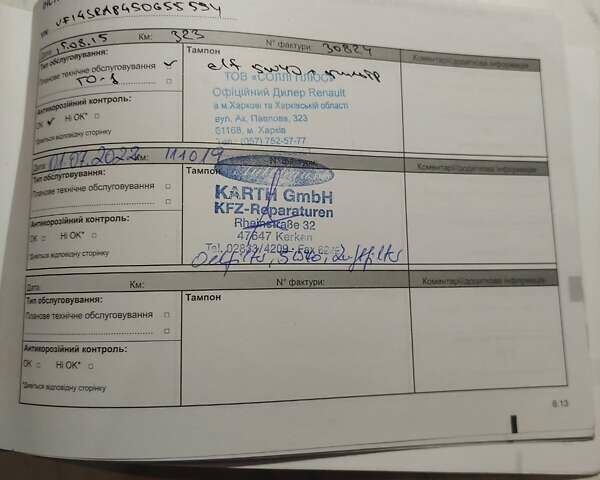 VIN: VF14SRAP450655594
Дата: 15.08.15 Км: 323 N° фактури: 30824
Тип обслуговування: Тампон Коментарі/додаткова інформація
Планове технічне обслуговування ✓ elf 5W40 + фильтр
ТО-1 ТОВ «СОЛЛІ ПЛЮС»
Офіційний Дилер Renault
Антикорозійний контроль: а м.Харкові та Харківській області
OK ✓ Ні OK* □ вул. Ак. Павлова, 323
61168, м. Харків
*Дивться відповідну сторінку Тел. (057) 752-57-77
Дата: 01.07.2022 Км: 111019 N° фактури: Коментарі/додаткова інформація
Тип обслуговування: Тампон
Планове технічне обслуговування □ KARTH GmbH
KFZ-Reparaturen
Антикорозійний контроль: Rheinstraße 32
OK □ Ні OK* □ 47647 Kerken
*Дивться відповідну сторінку Tel. 02833/4209 - Fax
Oelfilter, 5W40, Luftfilter
Дата: Км: N° фактури: Коментарі/додаткова інформація
Тип обслуговування: Тампон
Планове технічне обслуговування □
Антикорозійний контроль:
OK □ Ні OK* □
*Дивться відповідну сторінку
6.13